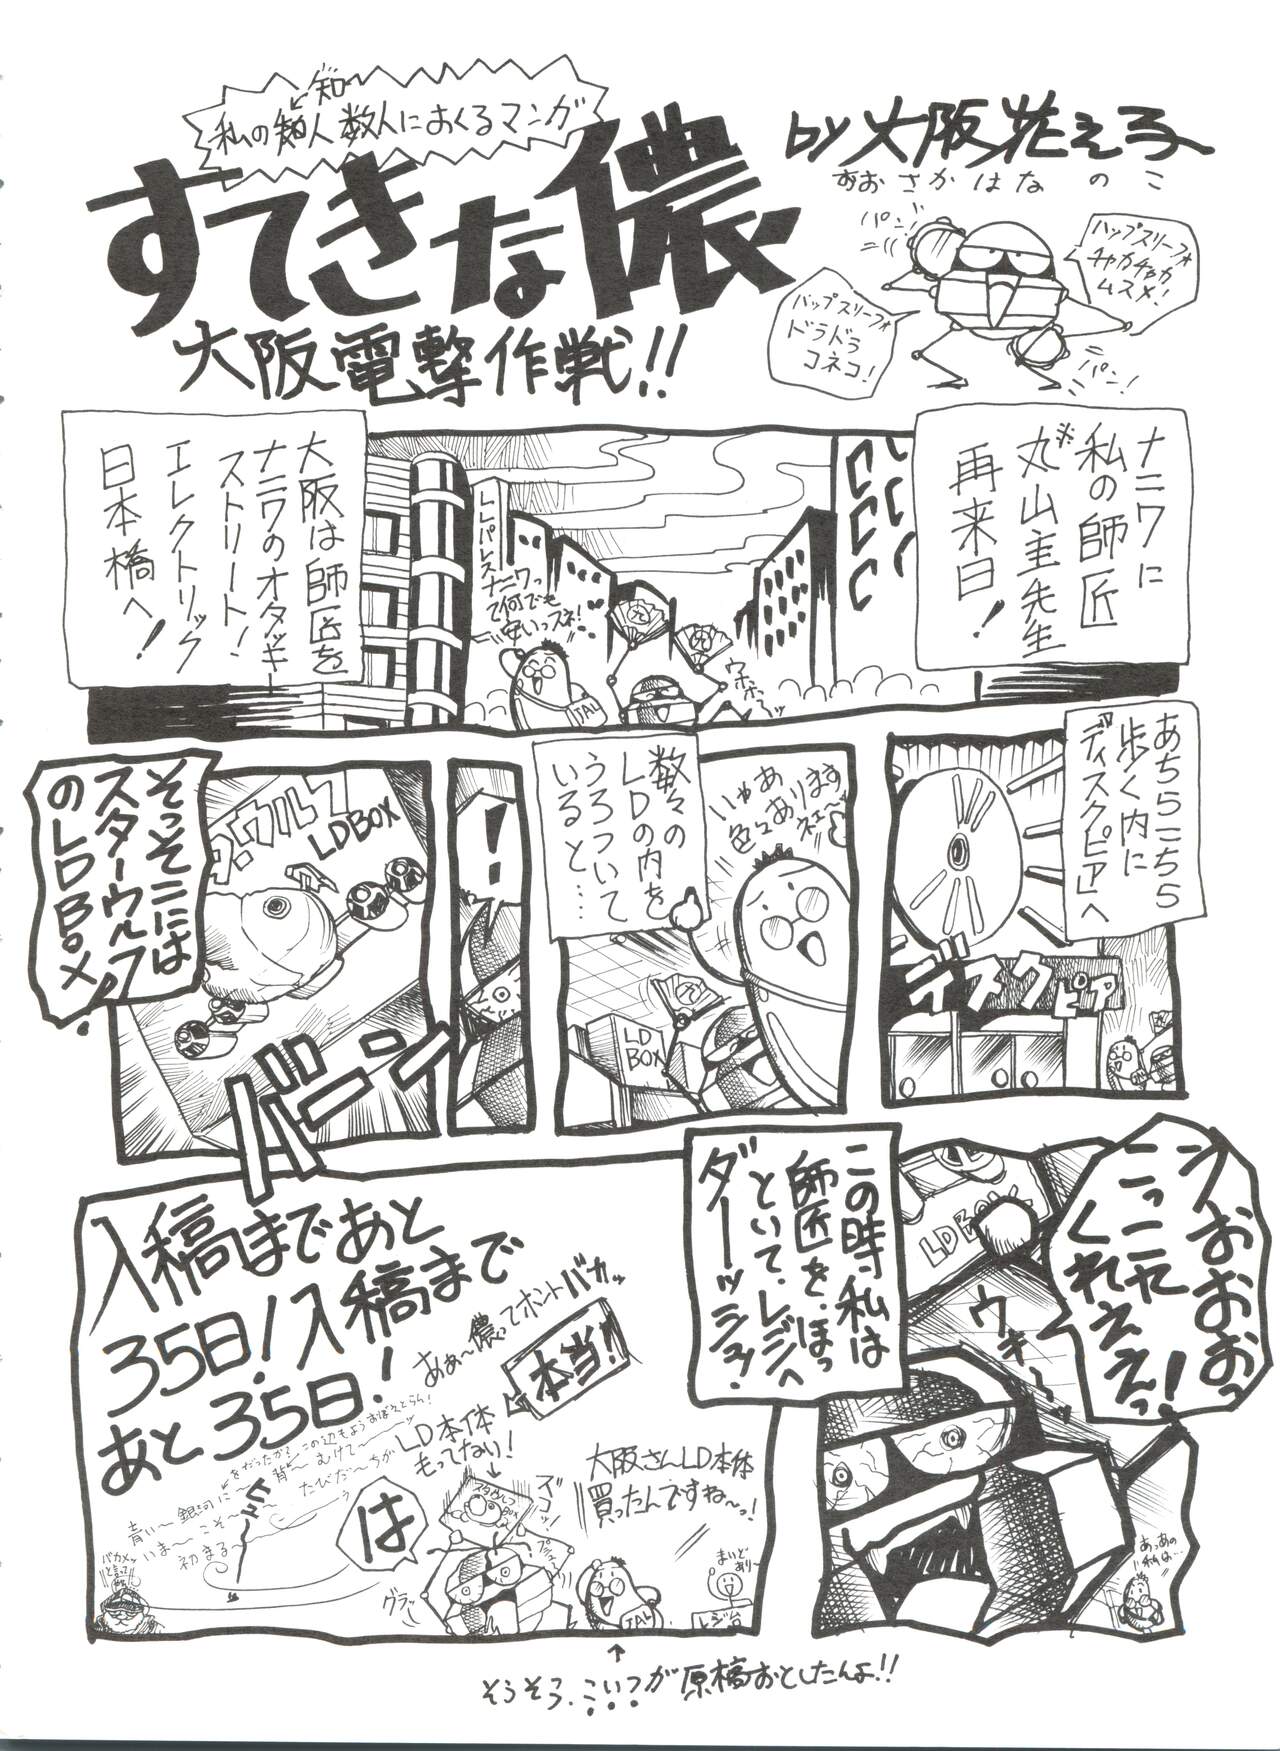 私の知人数人におくるマンガ
知
すてきな儂
大阪電撃作戦!!
by 大阪花え子
おおさかはなのこ
パン!
ハップスリーフォ
チャカチャカ
ムスメ!
ハップスリーフォ
ドラドラ
コネコ!
パン!
ナニワに
私の師匠
※丸山主先生
再来日!
大阪は師匠を
ナニワのオタッキー
ストリート!
エレクトリック
日本橋へ!
LLパレス
ナニワっ
て何でも
安いっスネ!
九
九
ウホホーッ
JAL
あちらこちら
歩く内に
「ディスクピア」へ
ディスクピア
数々の
LDの内を
うろついて
いると…
いやあ
色々あります
ネェ〜
九
LD
BOX
!
そっそこには
スターウルフ
のLDBOX!
ウルフ
LDBOX
バーン
うおおおっ
こっこれ
くれええっ!
LDBOX
ウキ〜〜
あっあの
私は…
この時私は
師匠を、ほっ
といて、レジへ
ダーッシュ!
入稿まであと
35日!入稿まで
あと35日!
あぁ〜儂ってホントバカッ
本当!!
LD本体
もってない!
スタウルフ
BOX
ズコッ!
プシュー
グラッ
は
大阪さんLD本体
買ったんですね〜っ!
まいど
ありー
レジ台
JAL
をがったがる
この辺もようおぼえとらん!
青い〜銀河に〜背〜むけて〜ッ
いま〜こそ〜たびだ〜ちが
初まる〜う
ヒュー
バカメッ
と言って
そうそう、こいつが原稿おとしたんよ!!